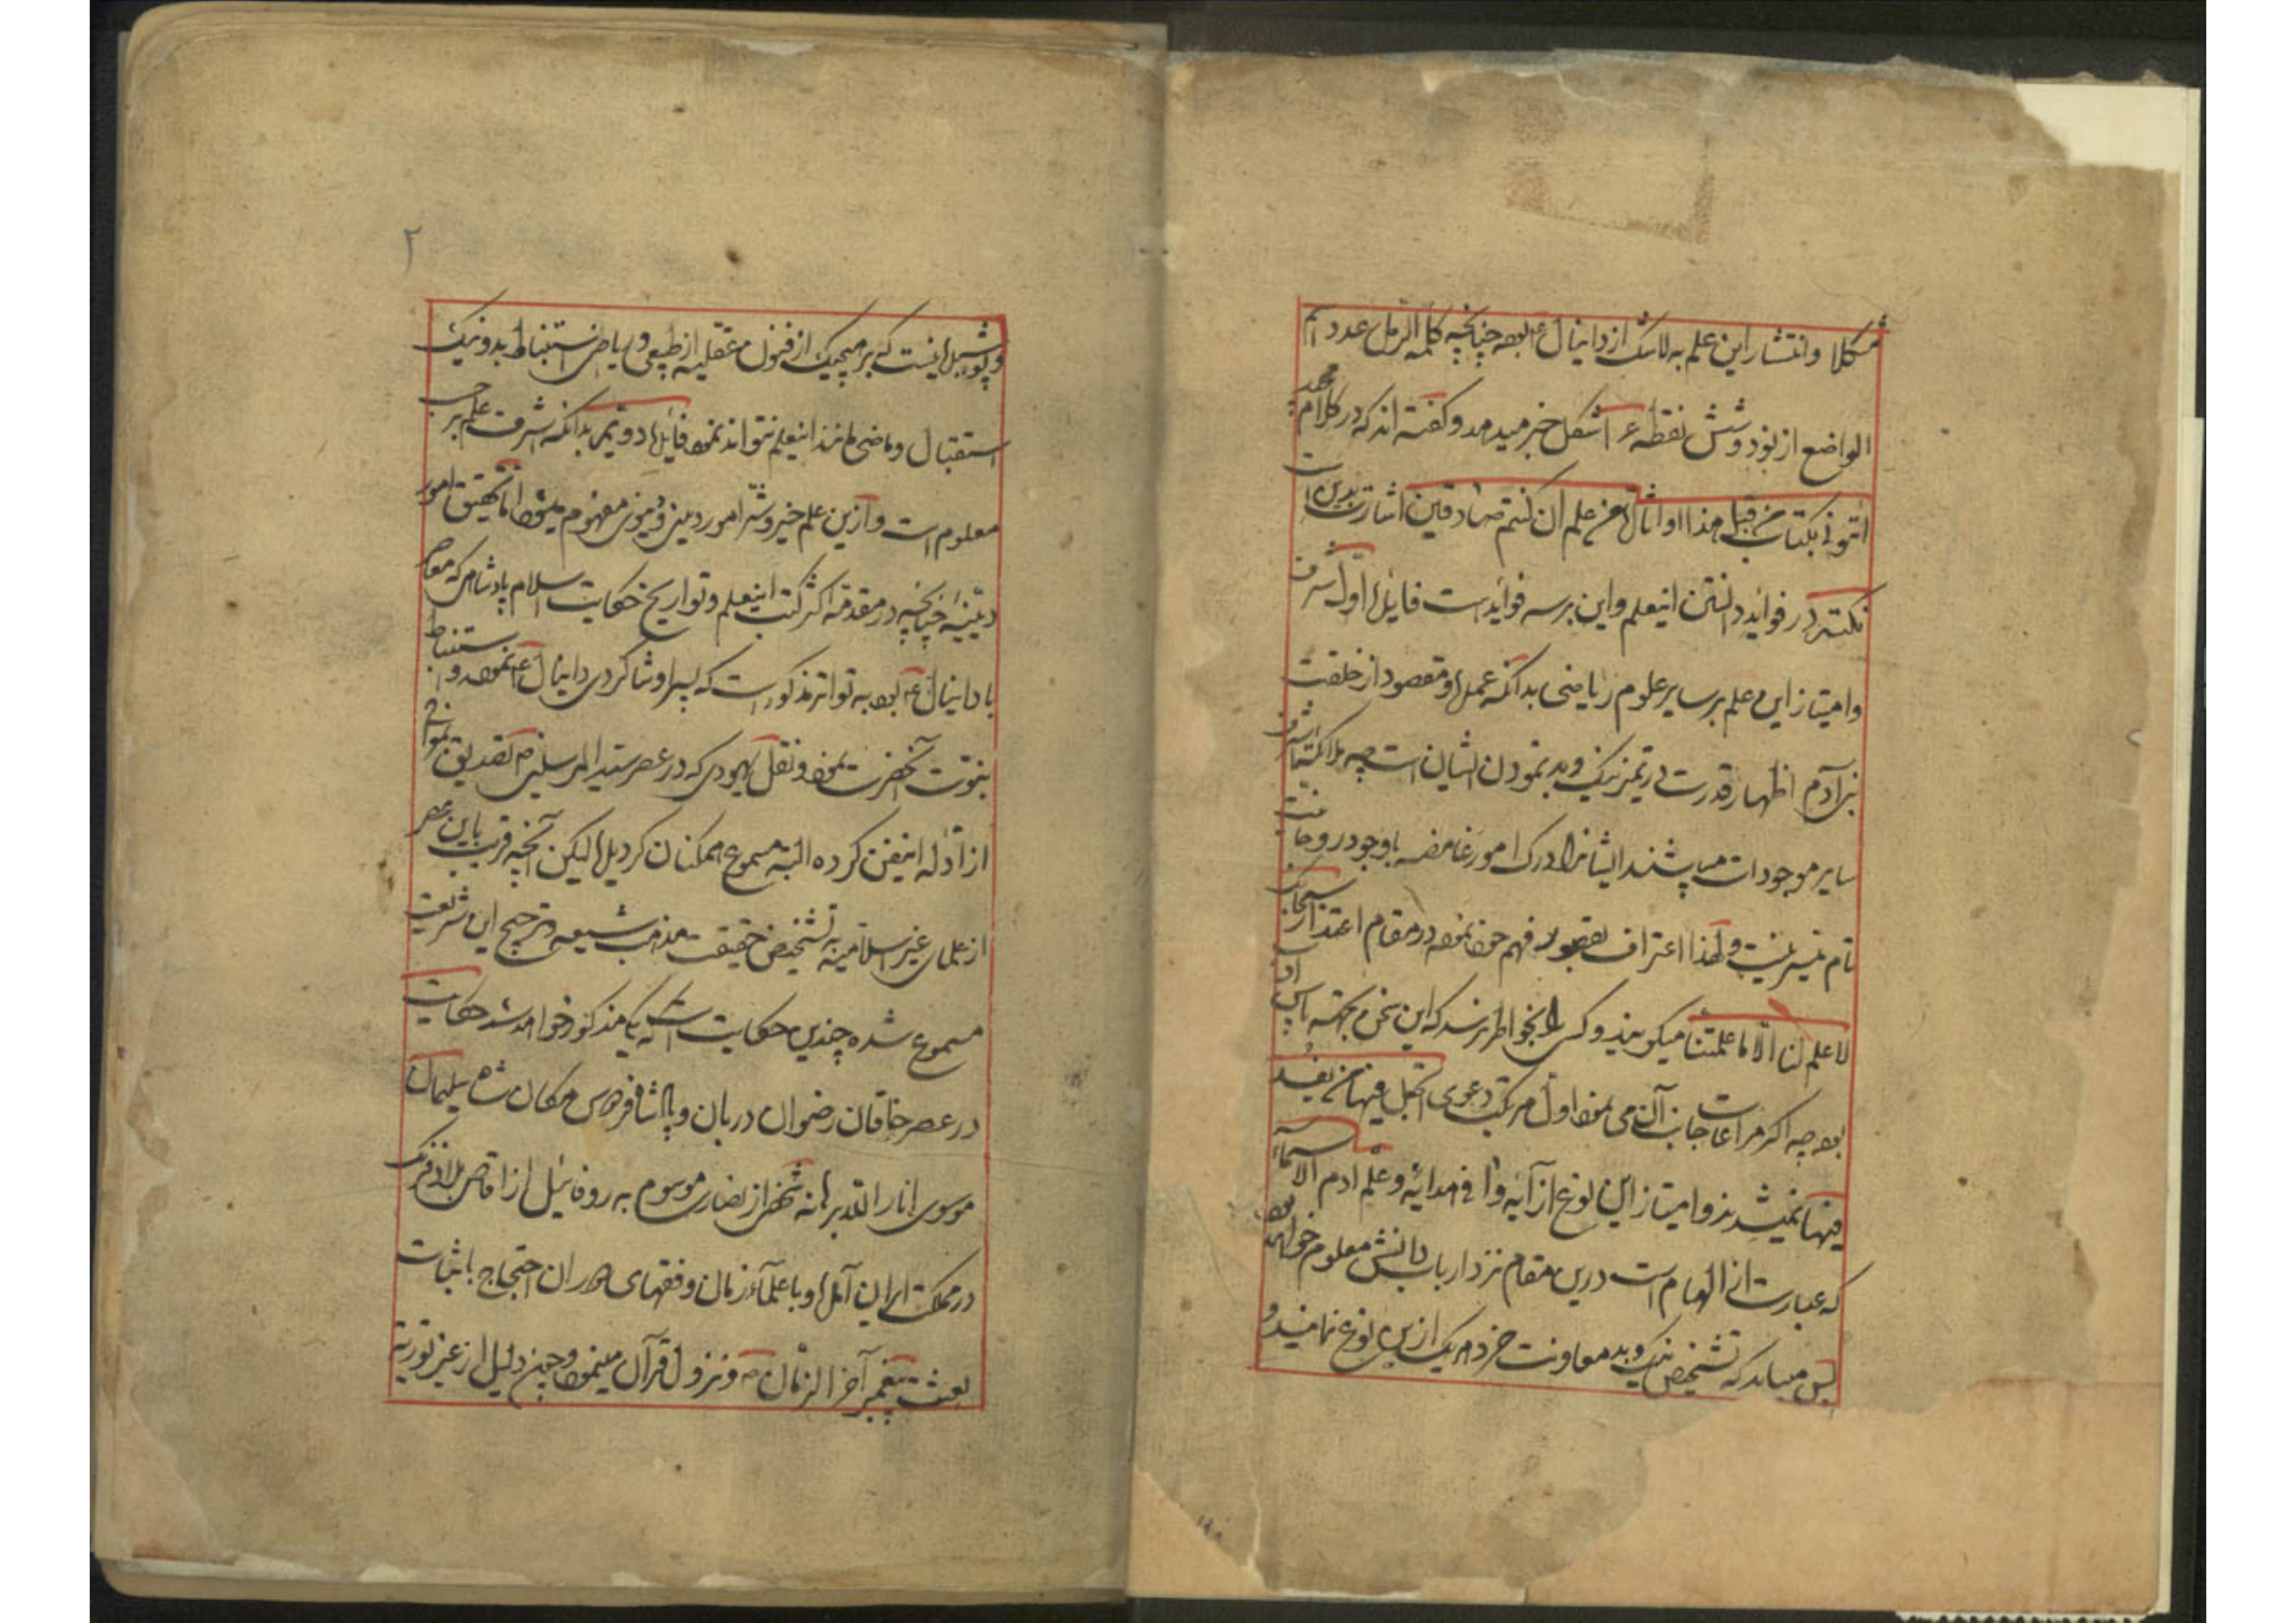 شکلا و انتشار این علم به لا شک از دانیال ع بوده چنانچه کلمه الرمل عدد اسم
الواضع از نود و شش نقطه ۱۶ شکل خبر میدهد و گفته اند که در کلام مجید
ائتونی بکتاب من قبل هذا او اثارة من علم ان کنتم صادقین اشارت بدین است
نکته در فواید دانستن اینعلم و این بر سه فوایدست فایده اول شرف
و امتیاز این علم بر سایر علوم ریاضی بدانکه عمل و مقصود از خلقت
بنی آدم اظهار قدرت در تمیز نیک و بد نمودن ایشان است چه ملائکه اشرف
سایر موجودات میباشند ایشانرا درک امور غامضه باوجود روحانیت
تام میسر نیست و لهذا اعتراف بقصور فهم خود نموده در مقام اعتذار سبحانک
لا علم لنا الا ما علمتنا میگویند و کسی را بخواطر نرسد که این سخن بجهته پاس ادب
بوده چه اگر مراعات جانب آن می نمود اول مرتکب دعوی اتجعل فیها من یفسد
فیها نمیشدند و امتیاز این نوع از آیه وافی هدایه و علم ادم الاسماء
که عبارت از الهام است درین مقام نزد ارباب دانش معلوم خواهد بود
پس میباید که تشخیص نیک و بد معاونت خرد هر یک ازین نوع نمایند و
۲
و پوشیده نیست که بر هیچیک از فنون عقلیه از طبیعی و ریاضی استنباط بد و نیک
استقبال و ماضی مانند اینعلم نتواند نمود فایده دویم بدانکه شرف علم بر حسب
معلوم است و ازین علم خیر و شر امور دینی و دنیوی مفهوم میشود اما تحقیق امور
دینیه چنانچه در مقدمه اکثر کتب اینعلم و تواریخ حکایت اسلام پادشاهی که معاصر
با دانیال ع بوده به تواتر مذکور است که پسر او شاگردی دانیال ع نموده و استنباط
نبوت آنحضرت نموده و نقل یهودی که در عصر سید المرسلین ص تصدیق نموده
از ادله اینفن کرده البته مسموع همکنان کردیده لیکن آنچه قریب باین عصر
از علمای غیر اسلامیه به تشخیص حقیقت مذهب شیعه و ترجیح این شریعت
مسموع شده چندین حکایت است که یکی مذکور خواهد شد حکایت
در عصر خاقان رضوان دربان و پادشاه فردوس مکان شاه سلیمان
موسوی انار الله برهانه شخصی از نصاری موسوم به روفائیل از اقاصی بلاد فرنک
در مملکت ایران آمده و با علماء زمان و فقهای دوران احتجاج باثبات
بعثت پیغمبر آخر الزمان ص و نزول قرآن مینمود و چنین دلیل از غیر توریة